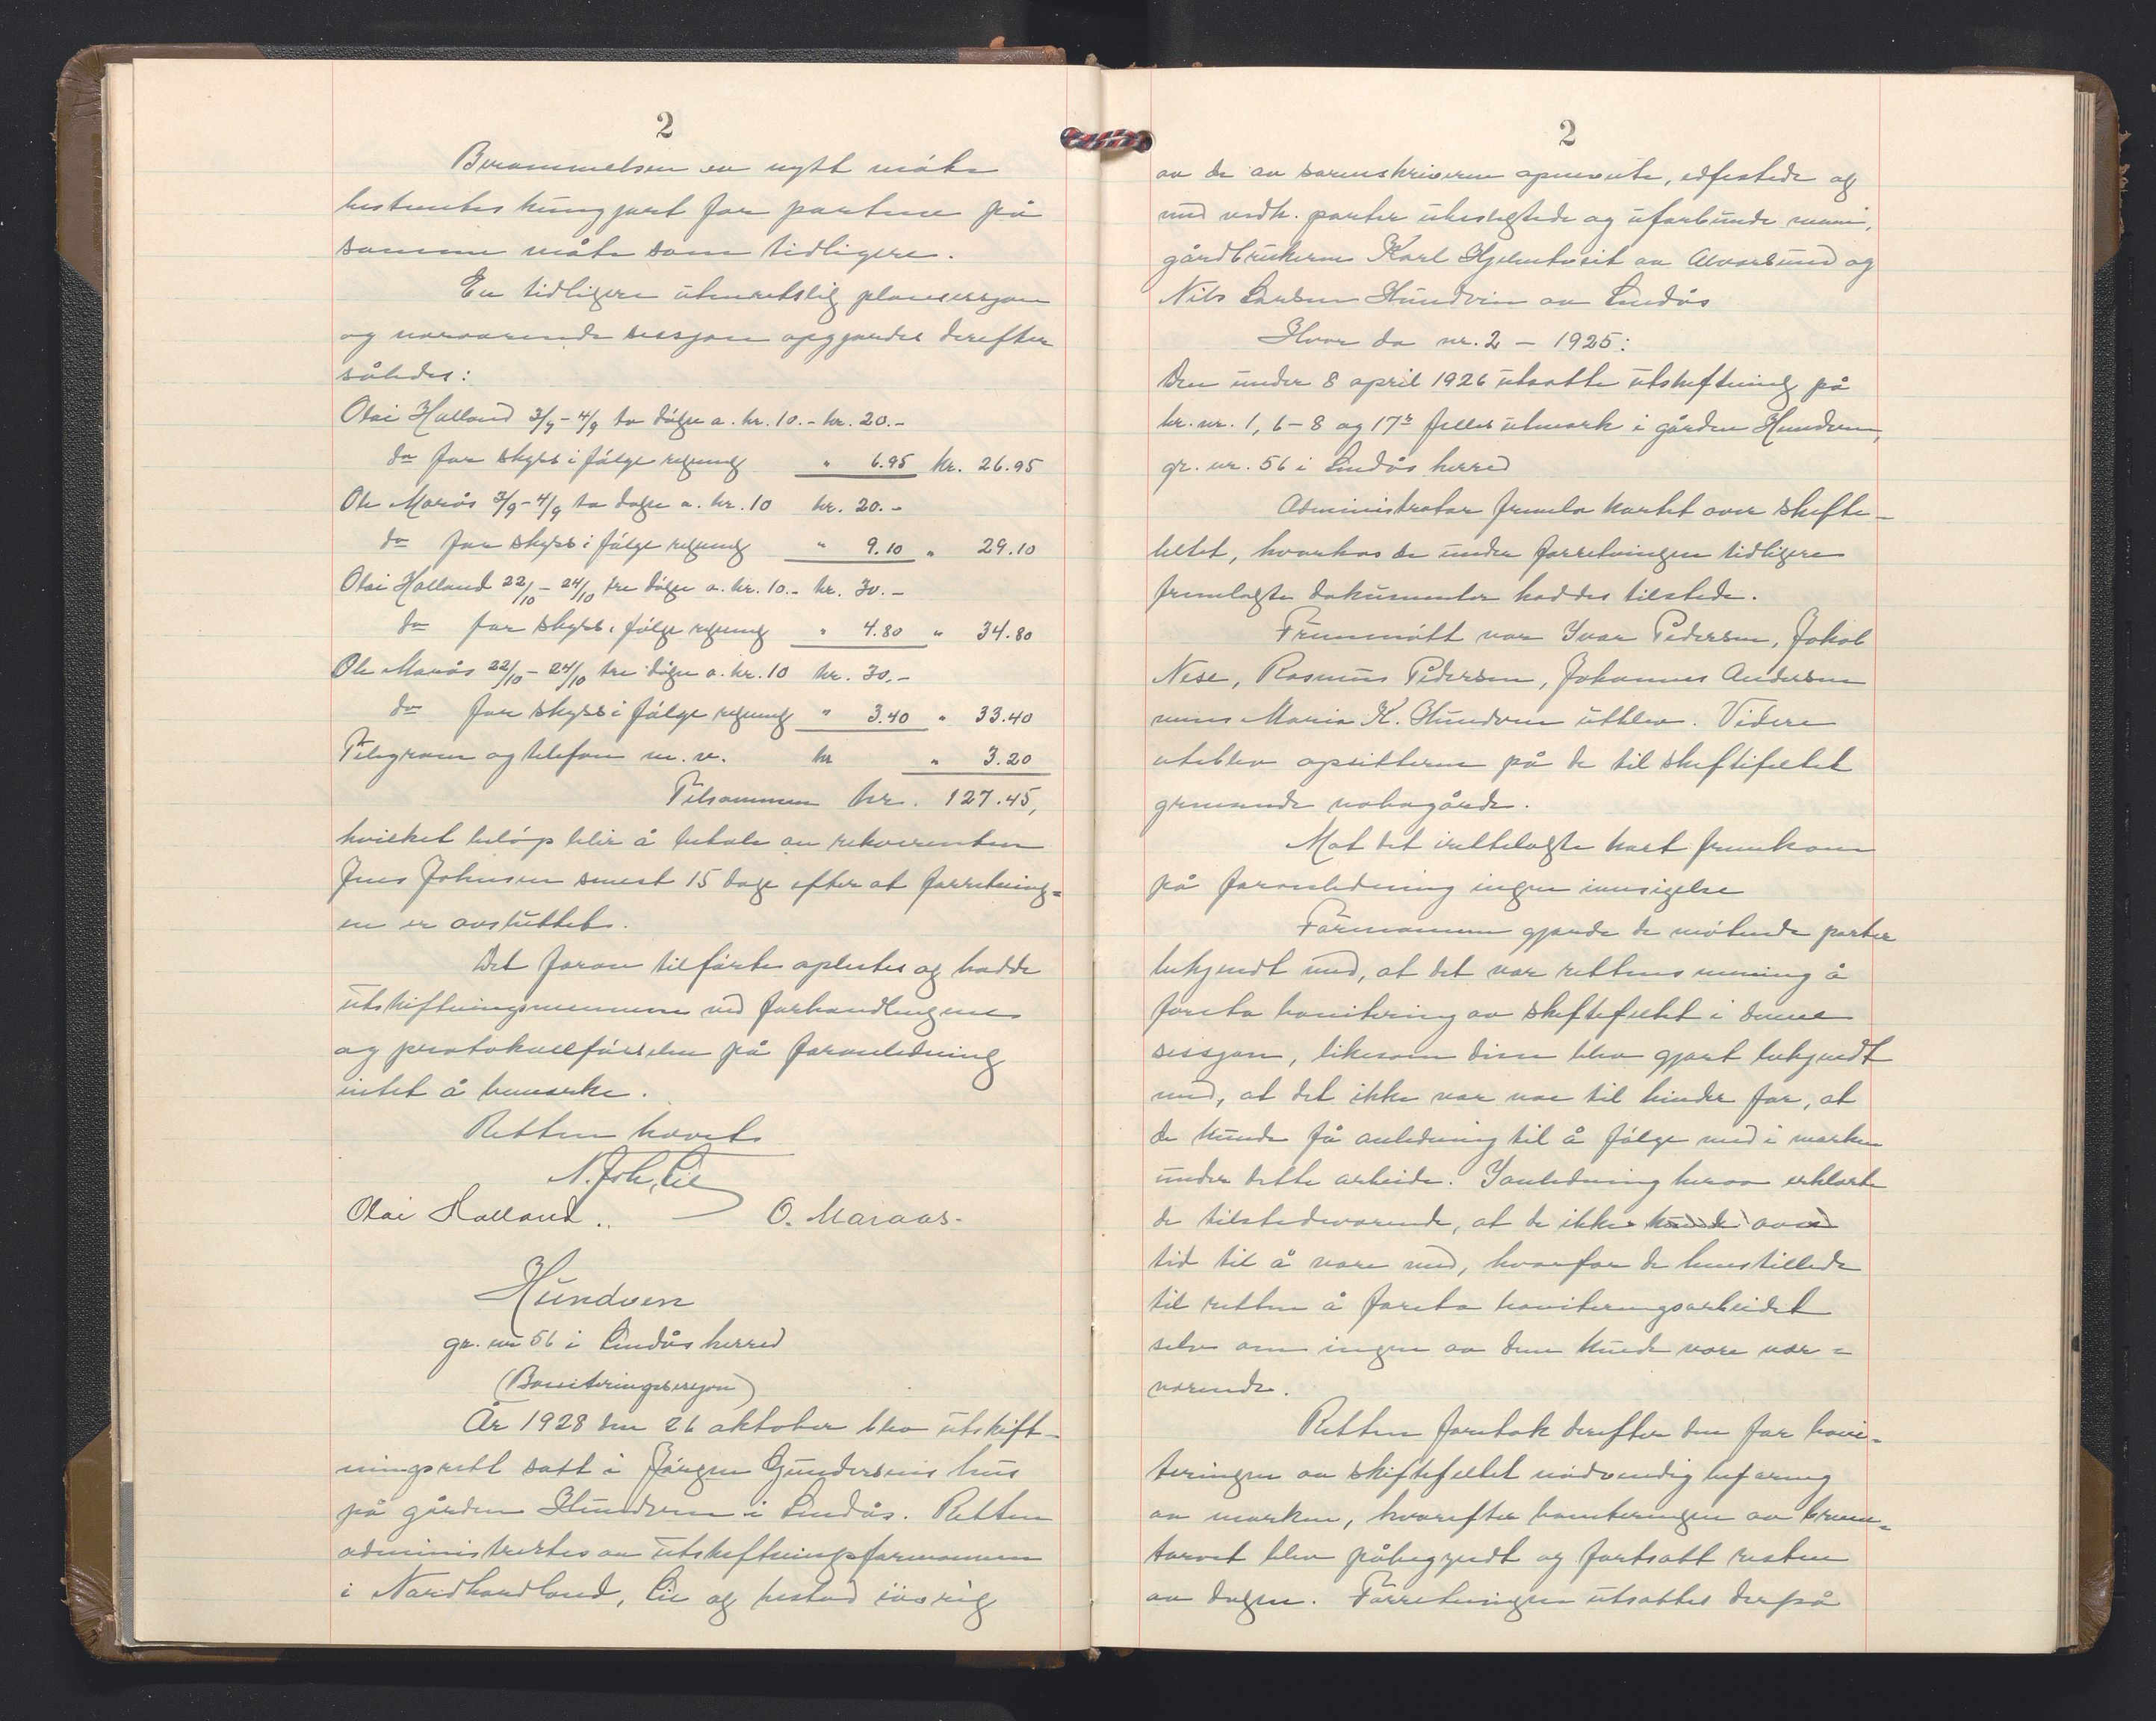 2
Berammelsen av nytt møte
besluttes kungjort for partene på
samme måte som tidligere.
En tidligere utenretslig plansessjon
og nærværende sessjon opgjordes derefter
således:
Olai Halland 3/9 - 4/9 to døgn a. kr. 10.- kr. 20.-
do for skyss i følge regning " 6.95 kr. 26.95
Ole Marås 3/9 - 4/9 to døgn a. kr. 10 kr. 20.-
do for skyss i følge regning " 9.10 " 29.10
Olai Halland 22/10 - 24/10 tre døgn a. kr. 10.- kr. 30.-
do for skyss i følge regning " 4.80 " 34.80
Ole Marås 22/10 - 24/10 tre døgn a. kr. 10 kr. 30.-
do for skyss i følge regning " 3.40 " 33.40
Telegram og telefon m. v. kr " 3.20
Tilsammen kr. 127.45,
hvilket beløp blir å betale av rekvirenten
Jens Johnsen senest 15 dage efter at forretning=
en er avsluttet.
Det foran tilførte oplestes og hadde
utskiftningsmennene ved forhandlingene
og protokollførselen på foranledning
intet å bemerke.
Retten hævet
N. Joh. Lie
Olai Halland. O. Maraas.
Hundven
gr. nr 56 i Lindås herred
(Boniteringssesjon)
År 1928 den 26 oktober blev utskift-
ningsrett satt i Jørgen Gundersens hus
på gården Hundven i Lindås. Retten
administrertes av utskiftningsformannen
i Nordhordland, Lie og bestod iøvrig
2
av de av sorenskriveren opnevnte, edfestede og
med vedk. parter ubeslegtede og uforbundne menn,
gårdbrukerne Karl Hjelmtveit av Alversund og
Nils Larsen Hundvin av Lindås
Hvor da nr. 2 - 1925:
Den under 8 april 1926 utsatte utskiftning på
br. nr. 1, 6-8 og 17s felles utmark i gården Hundven,
gr. nr. 56 i Lindås herred
Administrator fremla kartet over skifte-
feltet, hvorhos de under forretningen tidligere
fremlagte dokumenter haddes tilstede.
Fremmøtt var Ivar Pedersen, Jakob
Nese, Rasmus Pedersen, Johannes Andersen
mens Maria K. Hundven utblev. Videre
uteblev opsitterne på de til skiftefeltet
grensende nabogårde.
Mot det irettelagte kart fremkom
på foranledning ingen innsigelse
Formannen gjorde de møtende parter
bekjendt med, at det var rettens mening å
foreta bonitering av skiftefeltet i denne
sessjon, likesom disse blev gjort bekjendt
med, at det ikke var noe til hinder for, at
de kunde få anledning til å følge med i marken
under dette arbeide. I anledning herav erklærte
de tilstedeværende, at de ikke kunde avse
tid til å være med, hvorfor de henstillede
til retten å foreta boniteringsarbeidet
selv om ingen av dem kunde være nær=
værende.
Retten foretok derefter den for boni=
teringen av skiftefeltet nødvendig befaring
av marken, hvorefter boniteringen av brenn=
torvet blev påbegyndt og fortsatt resten
av dagen. Forretningen utsattes derpå